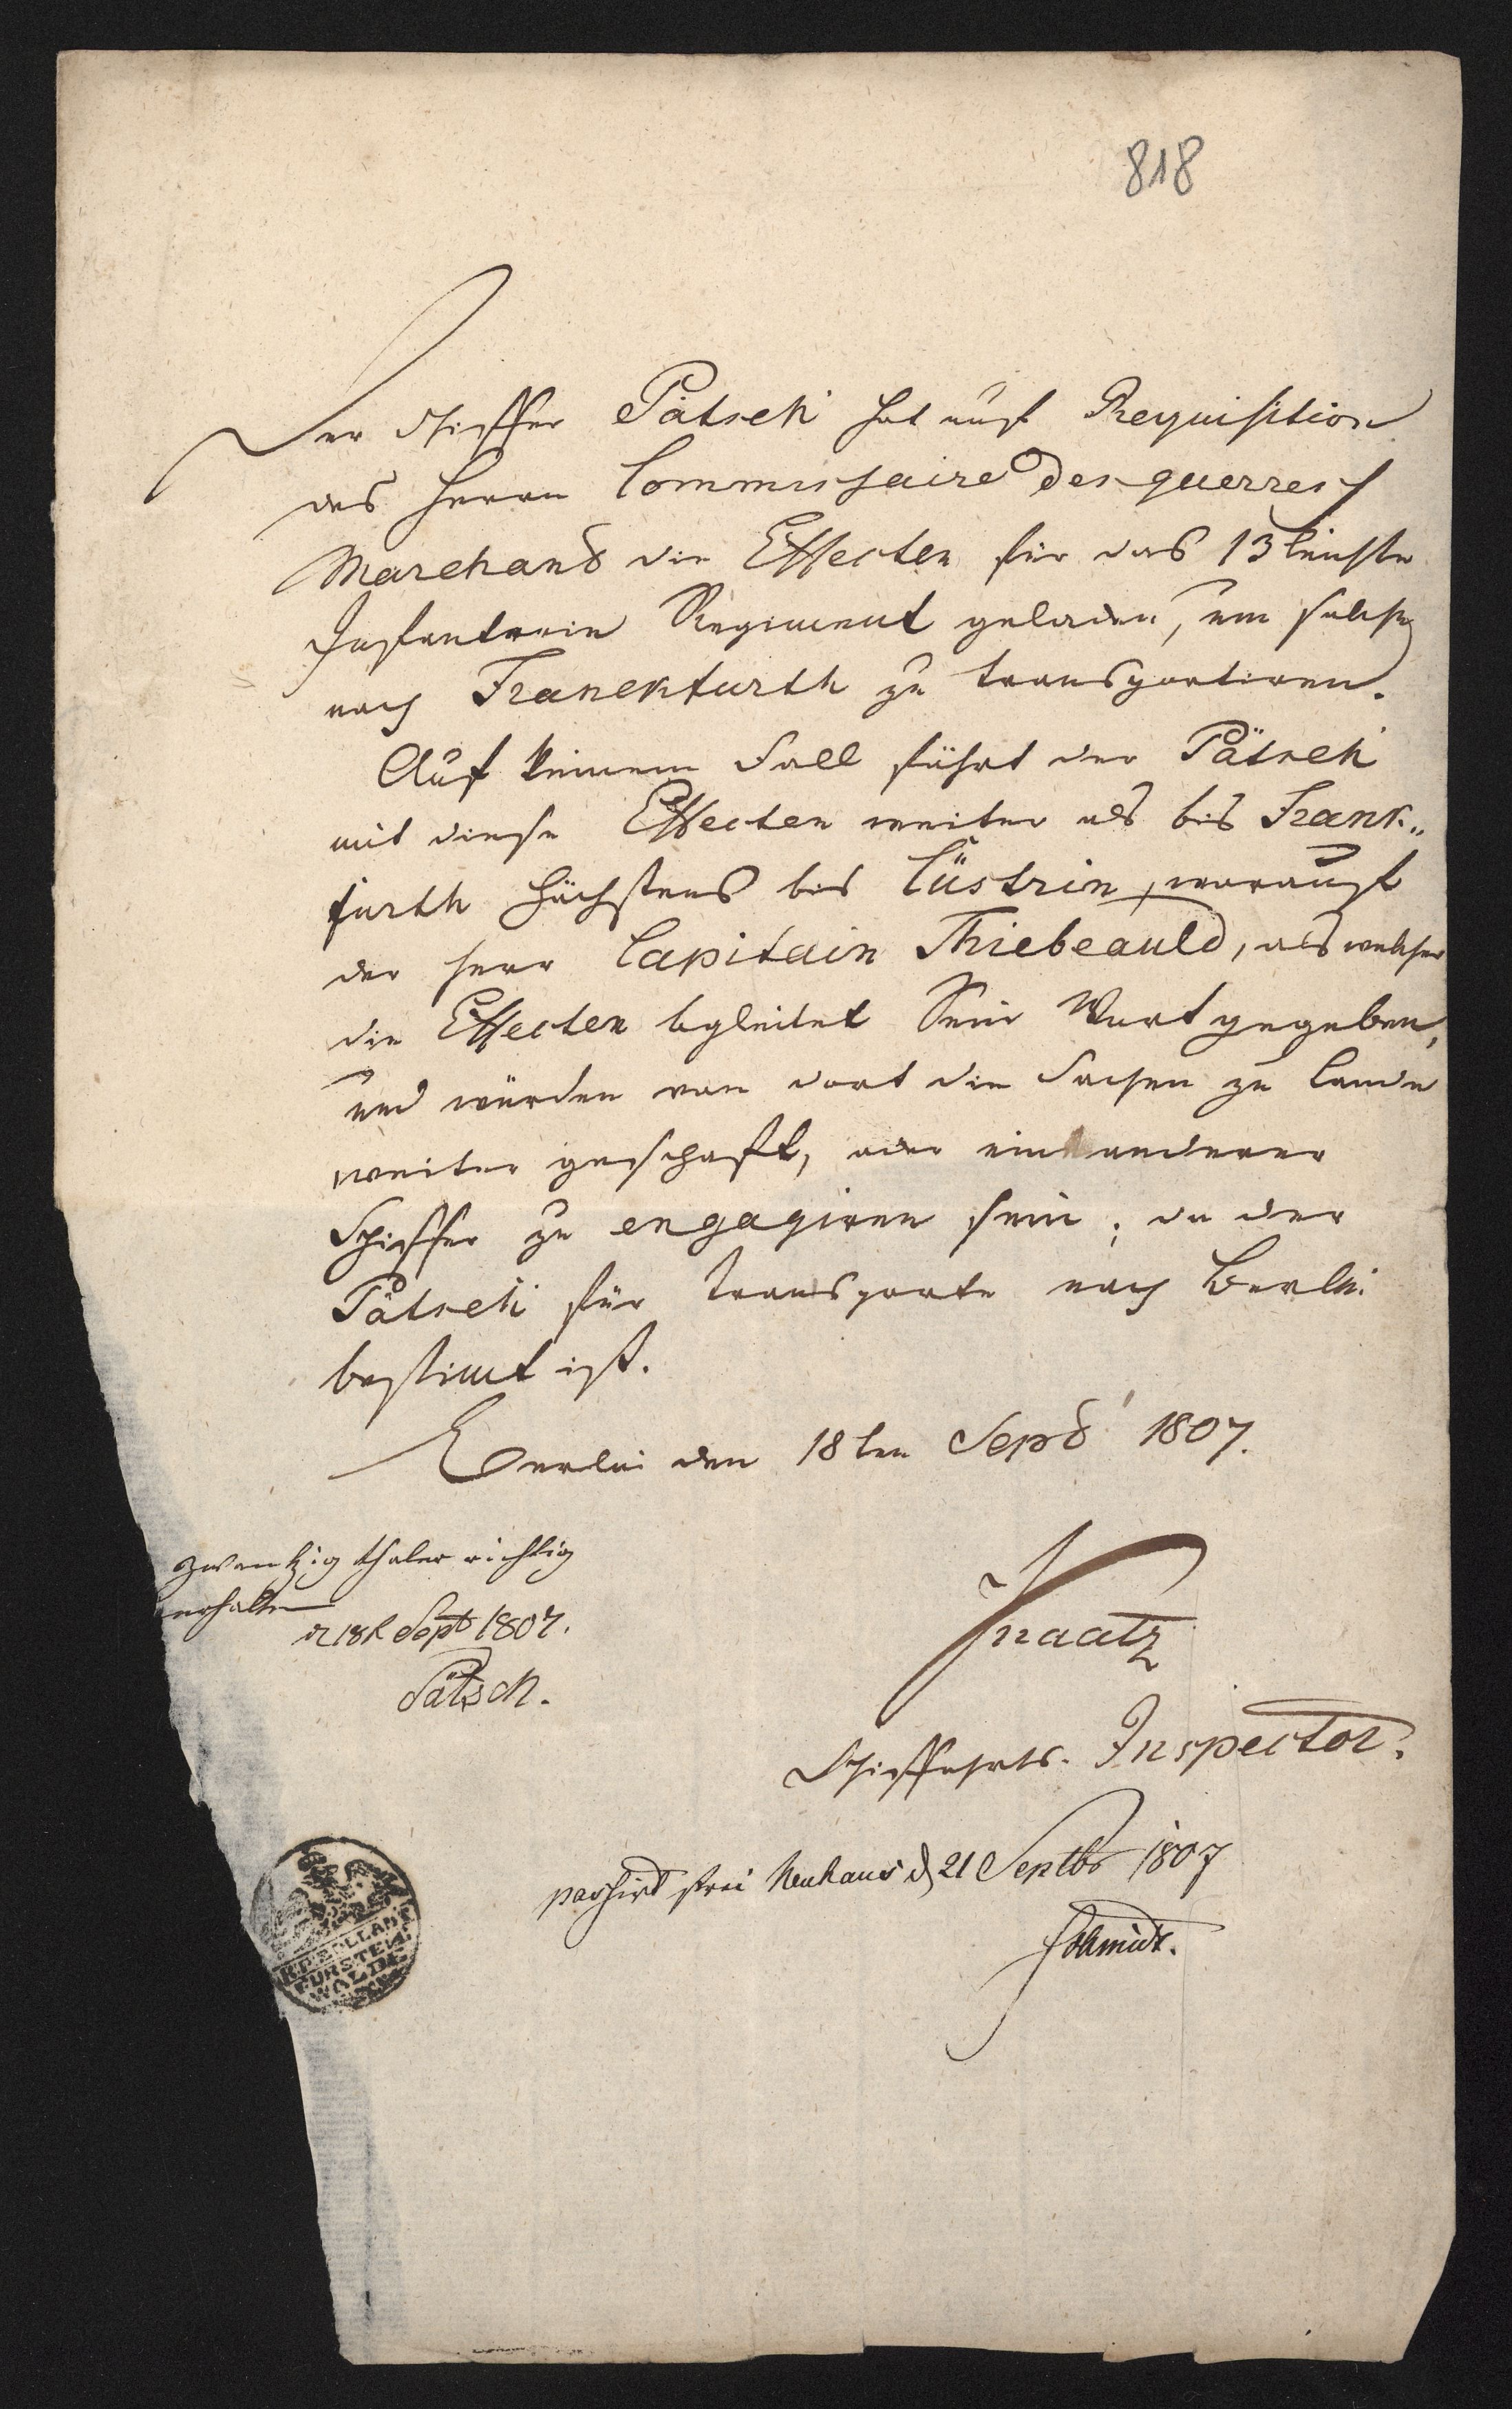 818
Der Schiffer Pätsch hat auf Requisition
des Herrn Commissaire des guerres
Marchand die Effecten für das 13 leichte
Infanterie Regiment geladen, um solche
nach Franckfurth zu transportiren.
Auf keinem Fall fährt der Pätsch
mit diese Effecten weiter als bis Frank„
furth höchstens bis Cüstrin, worauf
der Herr Capitain Thiebeauld, als welcher
die Effecten begleitet Sein Wort gegeben,
und würden von dort die Sachen zu Lande
weiter geschaft, oder ein anderer
Schiffer zu engagiren sein; da der
Pätsch für Transporte nach Berlin
bestimt ist.
Berlin den 18ten Sepb 1807.
zwantzig thaler richtig
erhalten
d 18t Sept 1807.
Pätsch.
Knaatz
Schiffahrts-Inspector.
passirt frei Neuhaus d 21 Septbr 1807
Schmidt.
FÜRSTEN
WALDE